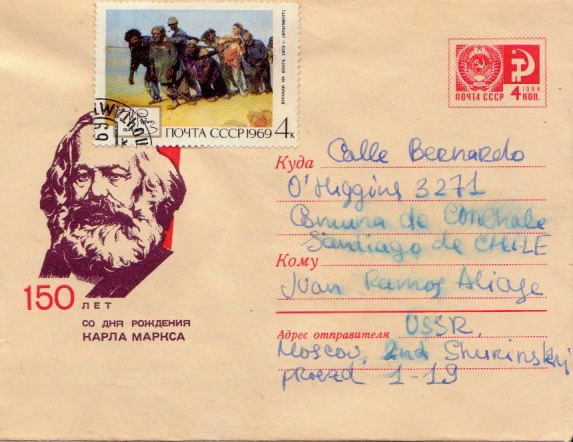 БУРЛАКИ НА ВОЛГЕ. 1873 г. (ФРАГМЕНТ)
ПОЧТА СССР 1969 4к
ПОЧТА СССР 4 КОП.
1966
Куда Calle Bernardo
O'Higgins 3271
Comuna de Conchale
Santiago de CHILE
Кому
Juan Ramos Aliage
Адрес отправителя USSR,
Moscow, 2nd Shurinskij
proezd 1-19
150 ЛЕТ
СО ДНЯ РОЖДЕНИЯ
КАРЛА МАРКСА